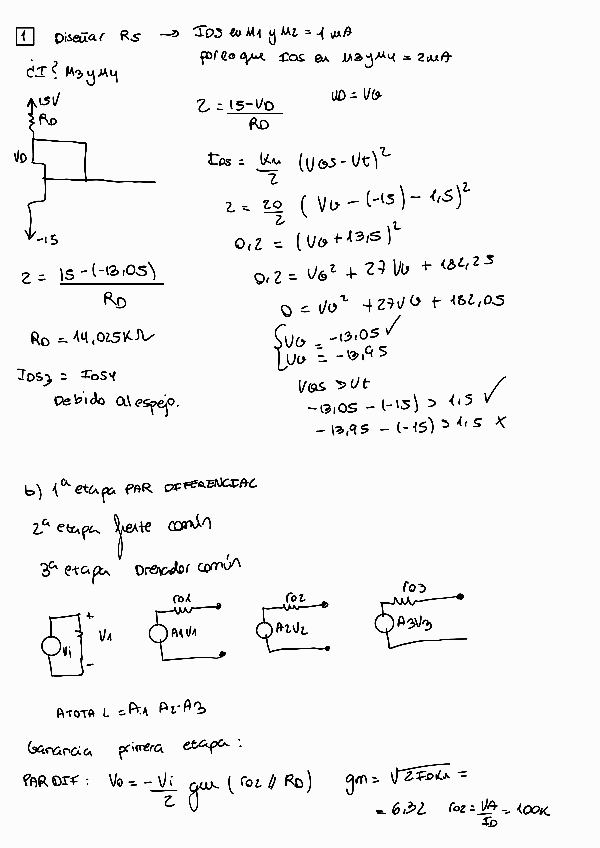 1 Diseñar RS → IDS en M1 y M2 = 1 mA
por lo que IDS en M3 y M4 = 2mA
¿I? M3 y M4
15V
RD
VD
-15
2 = 15-VD / RD
VD = VG
IDS = Kn/2 (VGS - Vt)^2
2 = 20/2 (VG - (-15) - 1,5)^2
0,2 = (VG + 13,5)^2
0,2 = VG^2 + 27 VG + 182,25
0 = VG^2 + 27VG + 182,05
VG = -13,05 ✓
VG = -13,95
VGS > Vt
-13,05 - (-15) > 1,5 ✓
-13,95 - (-15) > 1,5 X
2 = 15 - (-13,05) / RD
RD = 14,025KΩ
IDS3 = IDS4
Debido al espejo.
b) 1ª etapa PAR DIFERENCIAL
2ª etapa fuente común
3ª etapa Drenador común
Vi + V1 -
ro1 A1V1
ro2 A2V2
ro3 A3V3
ATOTAL = A1 · A2 · A3
Ganancia primera etapa:
PAR DIF: Vo = -Vi/2 gm (ro2 // RD) gm = √2IDKn =
= 6,32 ro2 = VA/ID = 100K